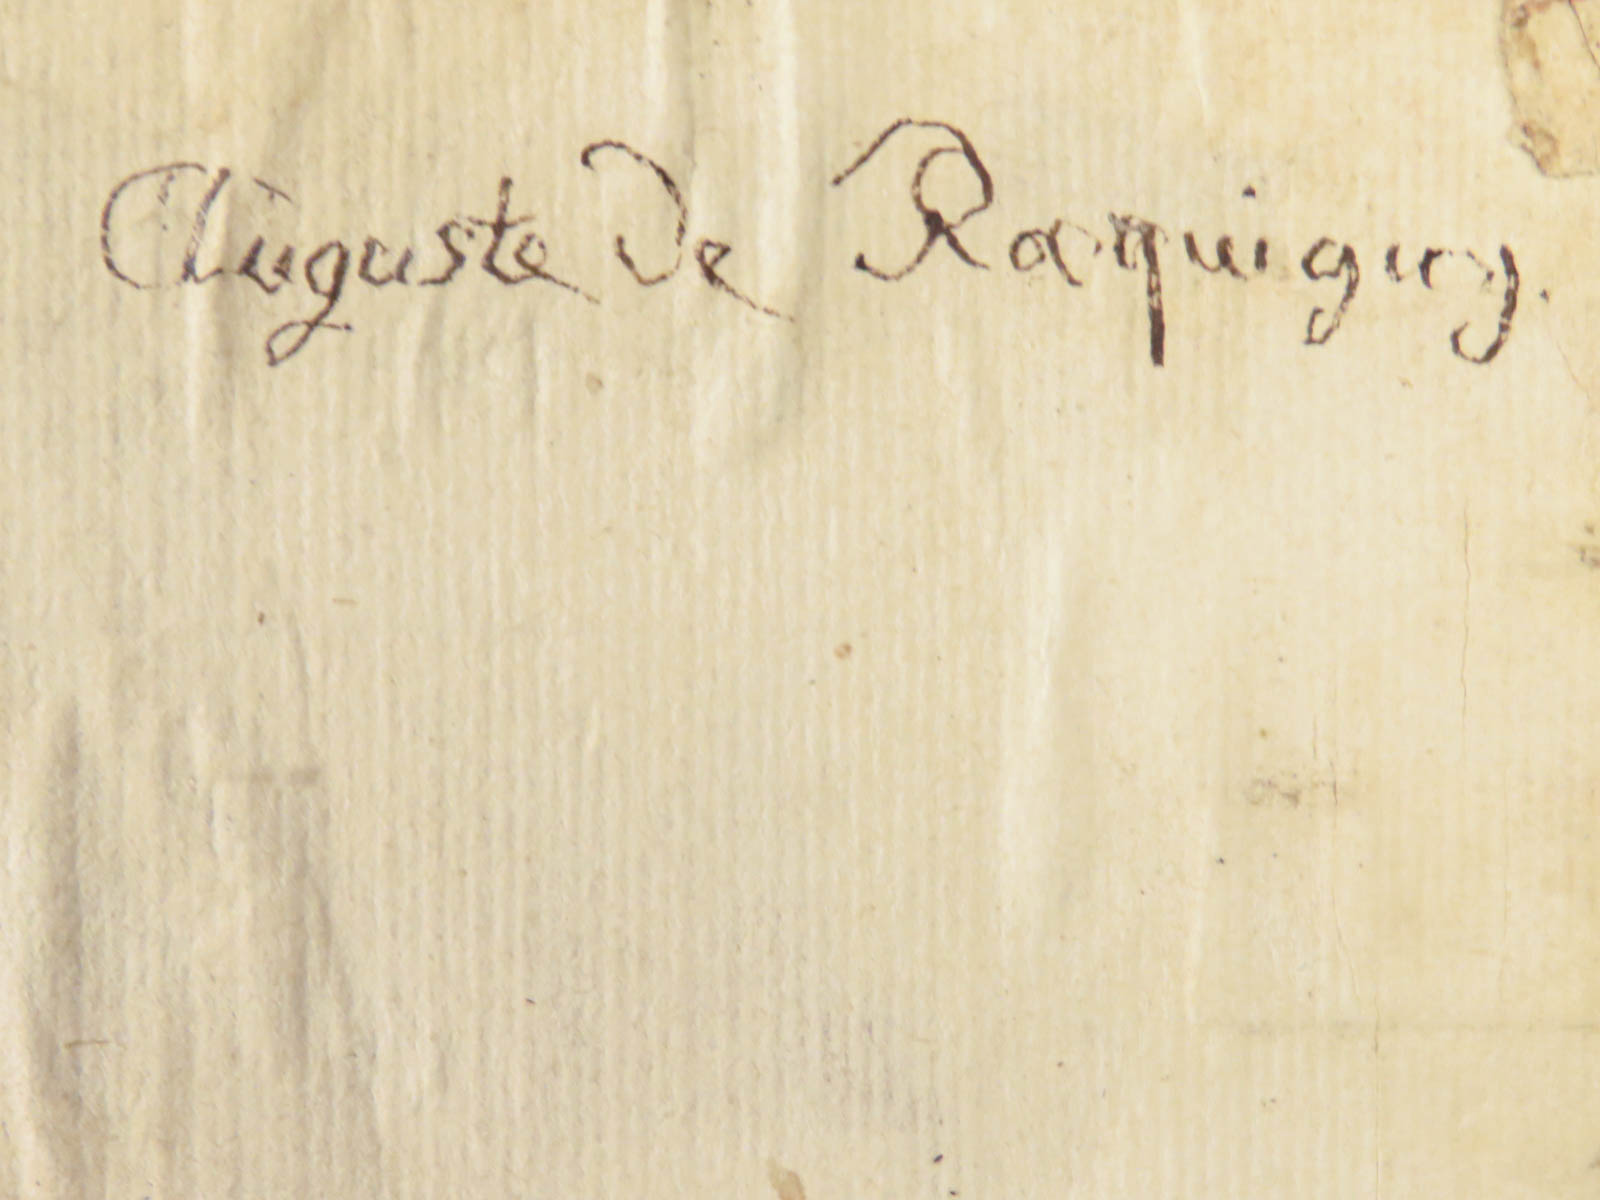 Auguste de Raquigny.